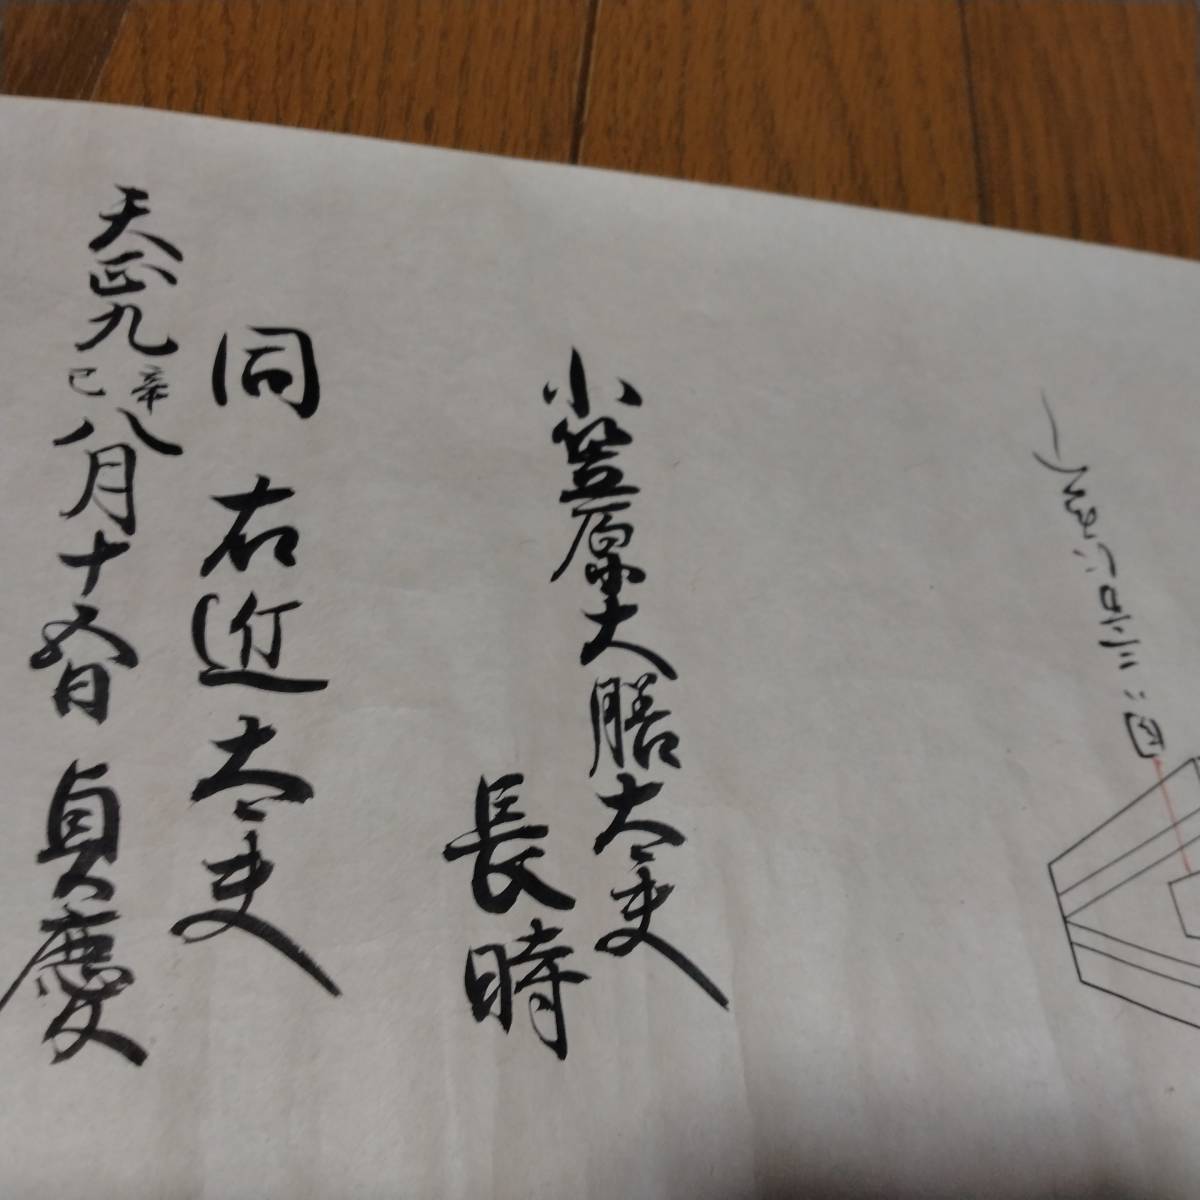 小笠原大膳大夫
長時
同 右近大夫
貞慶
天正九辛巳八月十五日